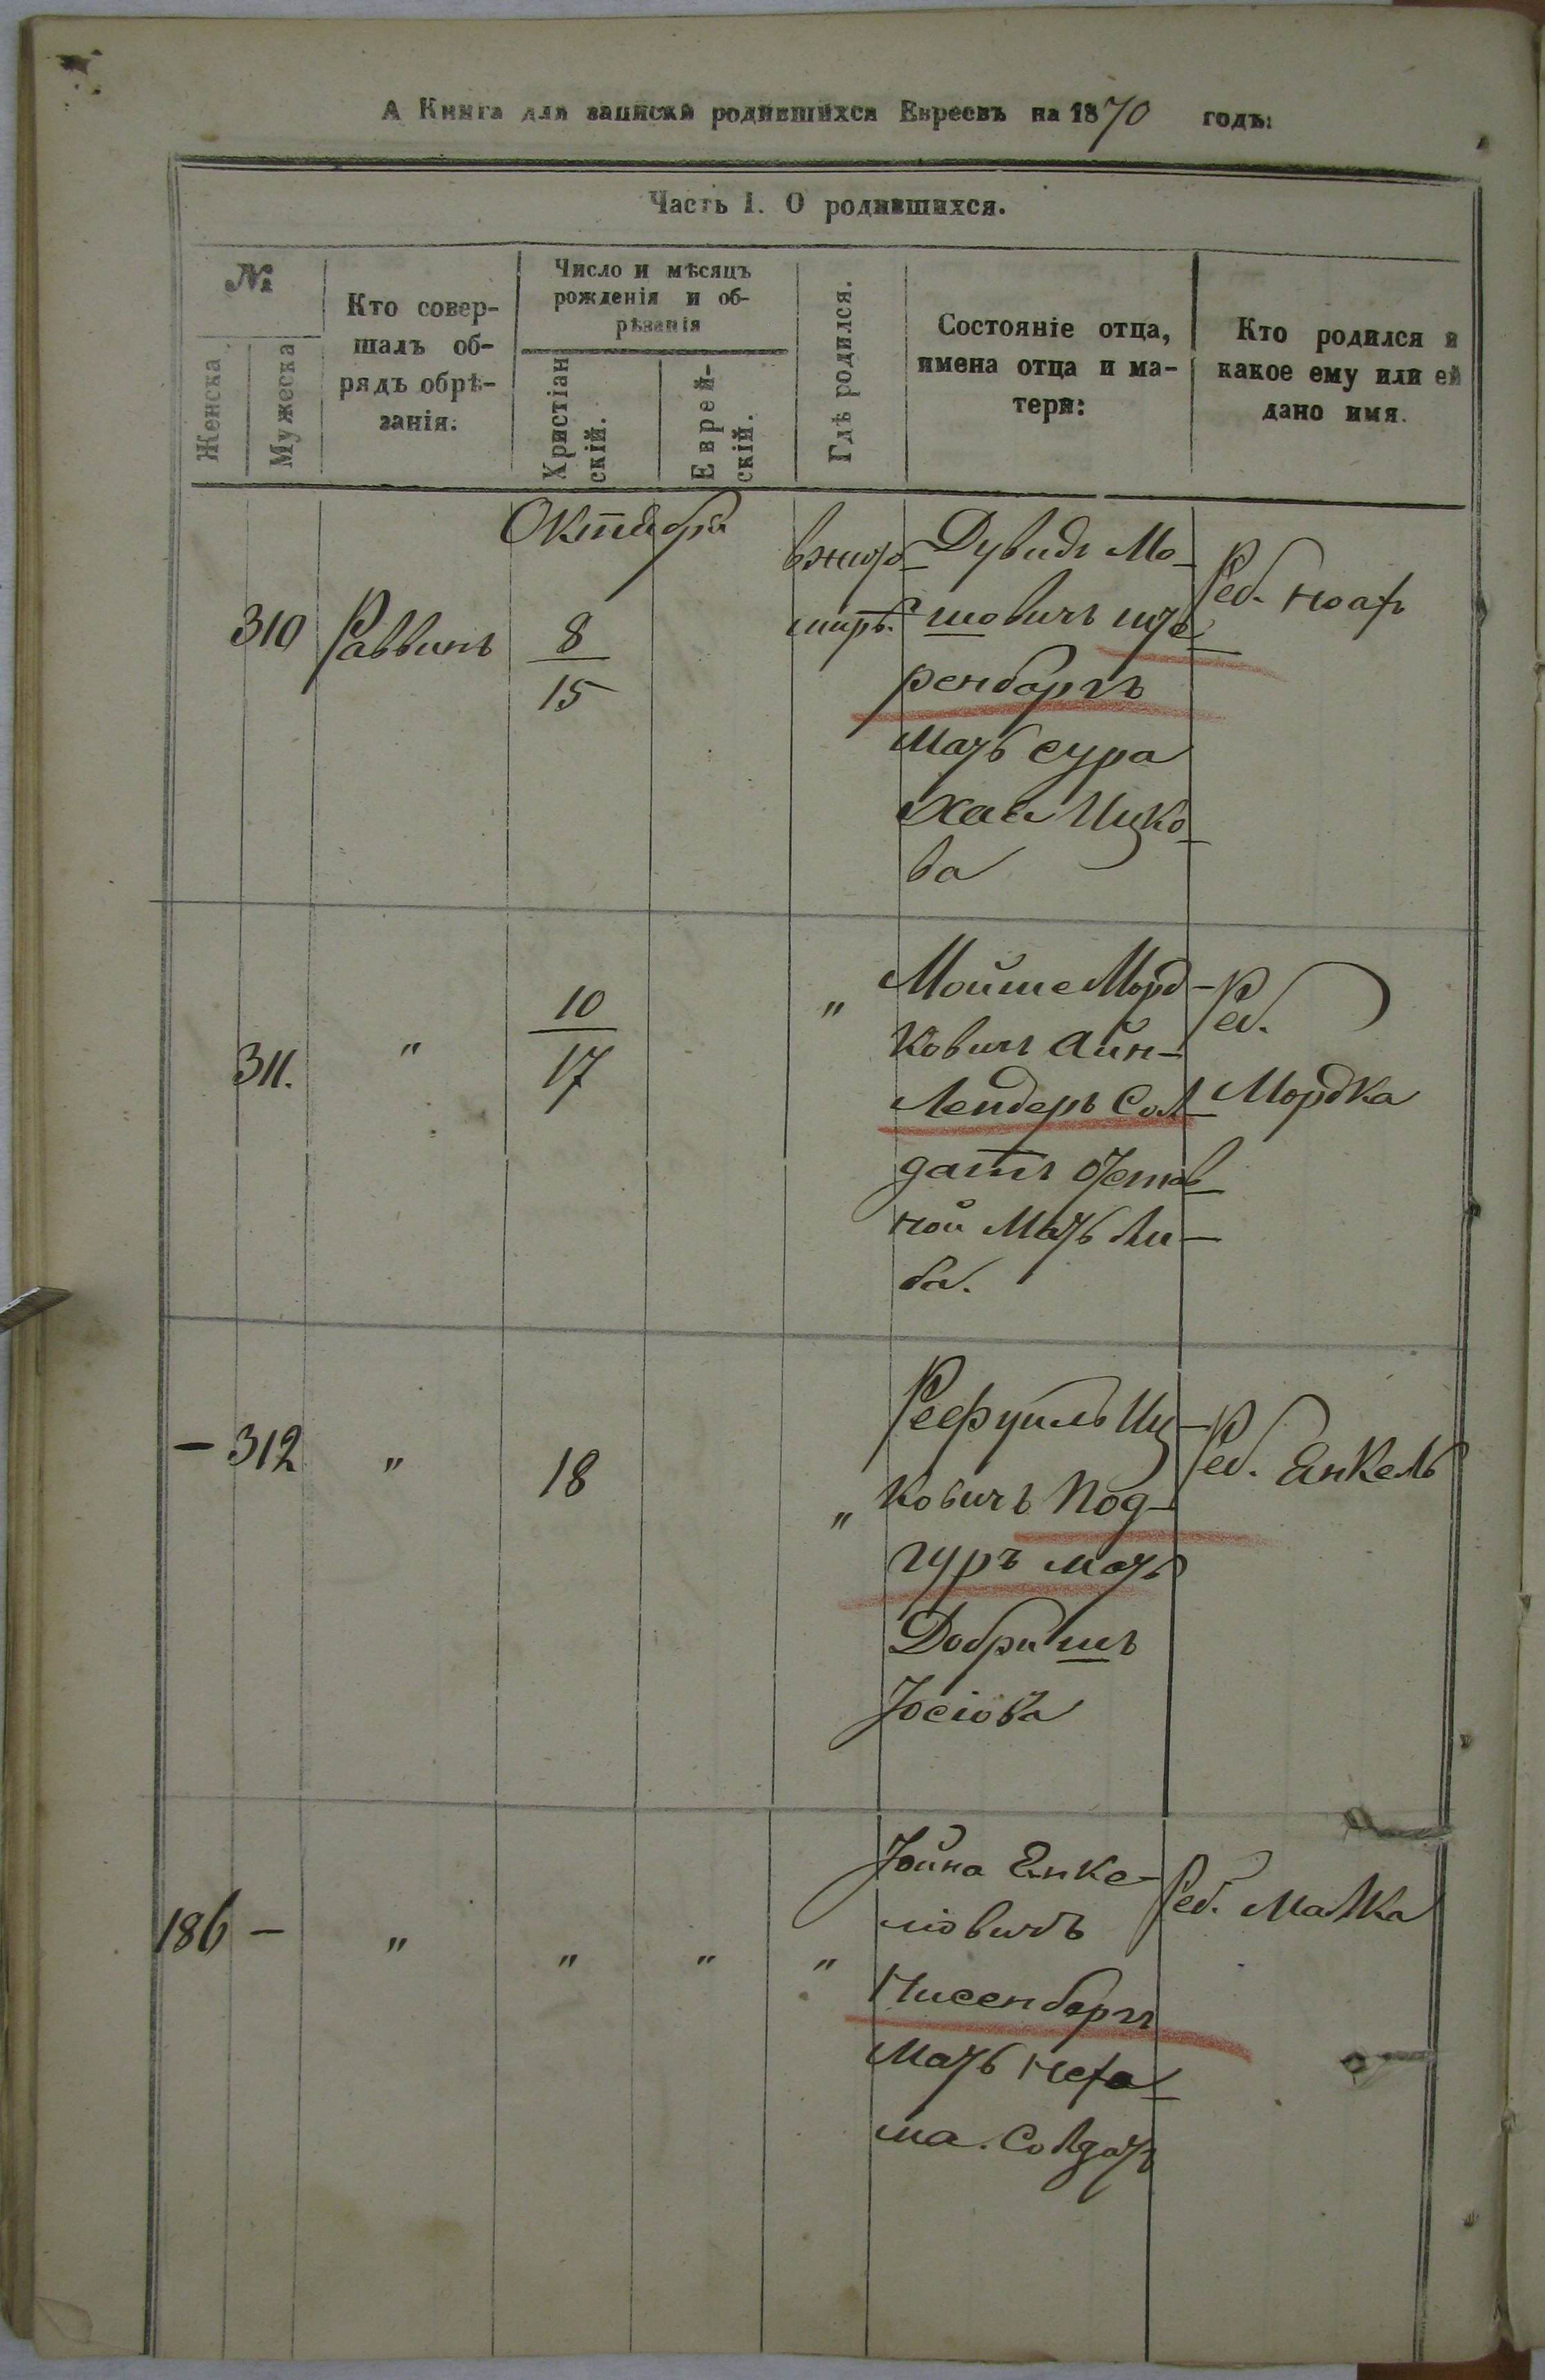 А Книга для записки родившихся Евреевъ на 1870 годъ:
Часть I. О родившихся.
№
Женска
Мужеска
Кто совер-
шалъ об-
рядъ обрѣ-
занія:
Число и мѣсяцъ
рожденія и об-
рѣзанія
Христіан
скій.
Еврей-
скій.
Гдѣ родился.
Состояніе отца,
имена отца и ма-
тери:
Кто родился и
какое ему или ей
дано имя.
Октября
310 Раввинъ 8
15
в жито-
миръ.
Дувидъ Мо-
шовичъ ште-
ренбаргъ
Мать сура
хая Ицко-
ва
Реб. Ноахъ
311. " 10
17
"
Мойше Морд-
ковичъ Айн-
лендеръ Сол-
датъ отстав-
ной Мать Ли-
ба.
Реб.
Мордка
– 312 " 18 "
Рефуиль Иц-
ковичъ Под-
гуръ мать
Добришъ
Јосіова
Реб. Енкель
186 – " " " "
Јойна Енке-
ліовичъ
Нисенборгъ
Мать неха-
ма. Солдатъ
Реб. Малка